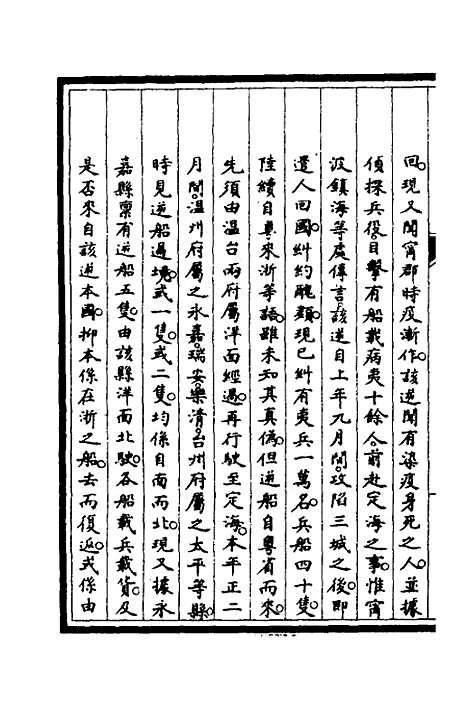 回。現又聞甯郡時疫漸作。該逆聞有染疫身死之人。並據
偵探兵役。目擊有船載病夷十餘人。前赴定海之事。惟甯
波鎮海等處傳言。該逆自上年九月間。攻陷三城之後。即
遣人回國。糾約醜類。現已糾有夷兵一萬名。兵船四十隻。
陸續自粵來浙等語。雖未知其真偽。但逆船自粵省而來。
先須由溫台兩府屬洋面經過。再行駛至定海。本年正二
月間。溫州府屬之永嘉。瑞安。樂清。台州府屬之太平等縣。
時見逆船過境。或一隻。或二隻。均係自南而北。現又據永
嘉縣稟有逆船五隻。由該縣洋面北駛。各船載兵載貨。及
是否來自該逆本國。抑本係在浙之船。去而復返。或係由